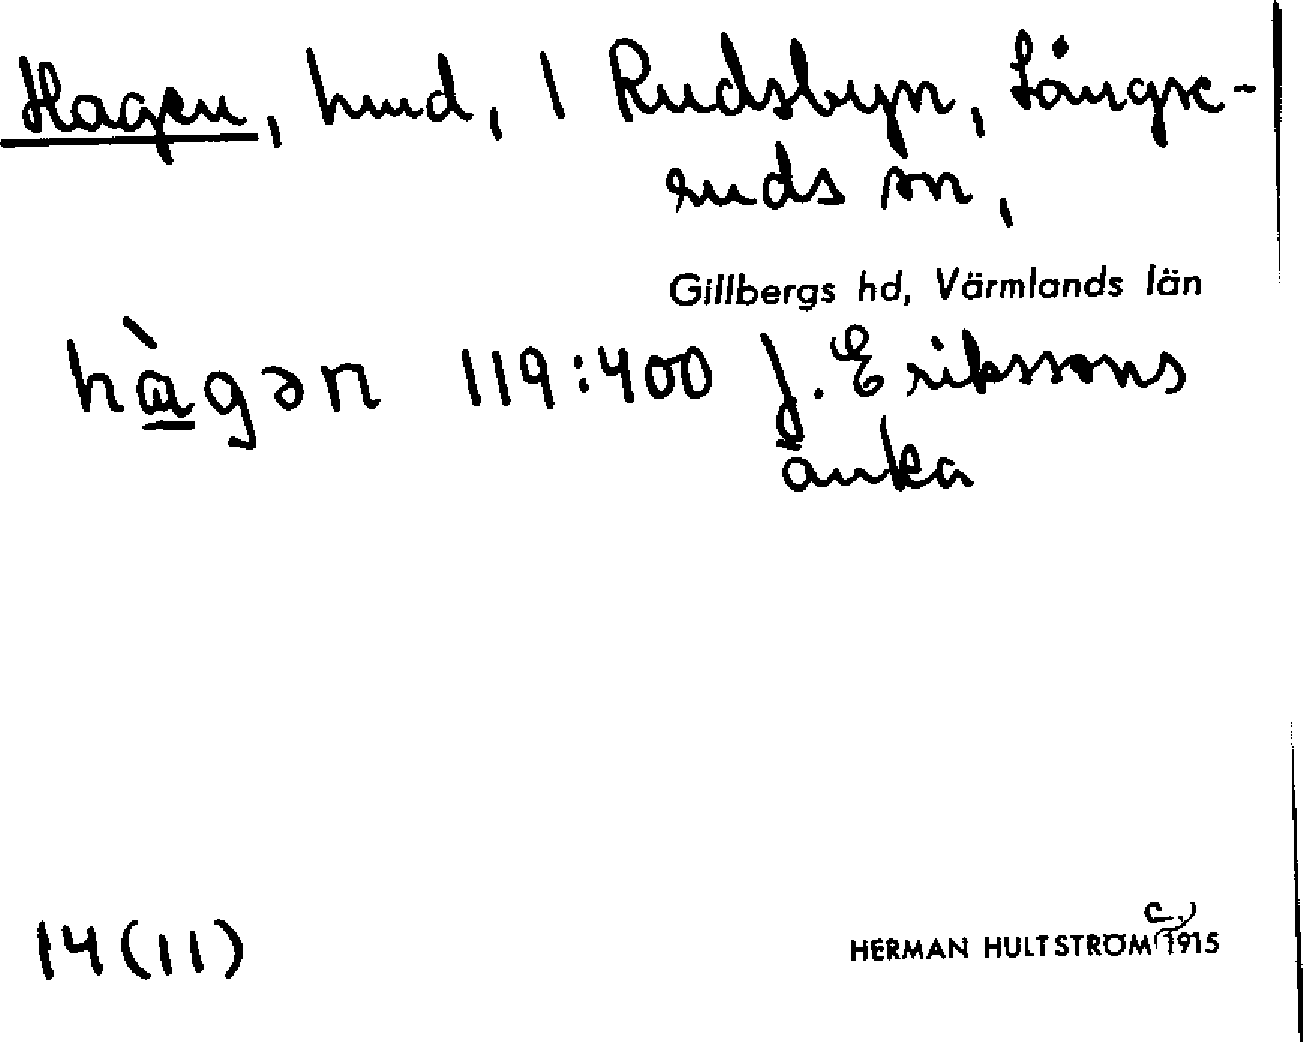 Hagen, hmd, 1 Rudsbyn, Långse-
ruds sn,
Gillbergs hd, Värmlands län
hàgən 119:400 J. Erikssons
änka
14(11)
HERMAN HULTSTRÖM 1915